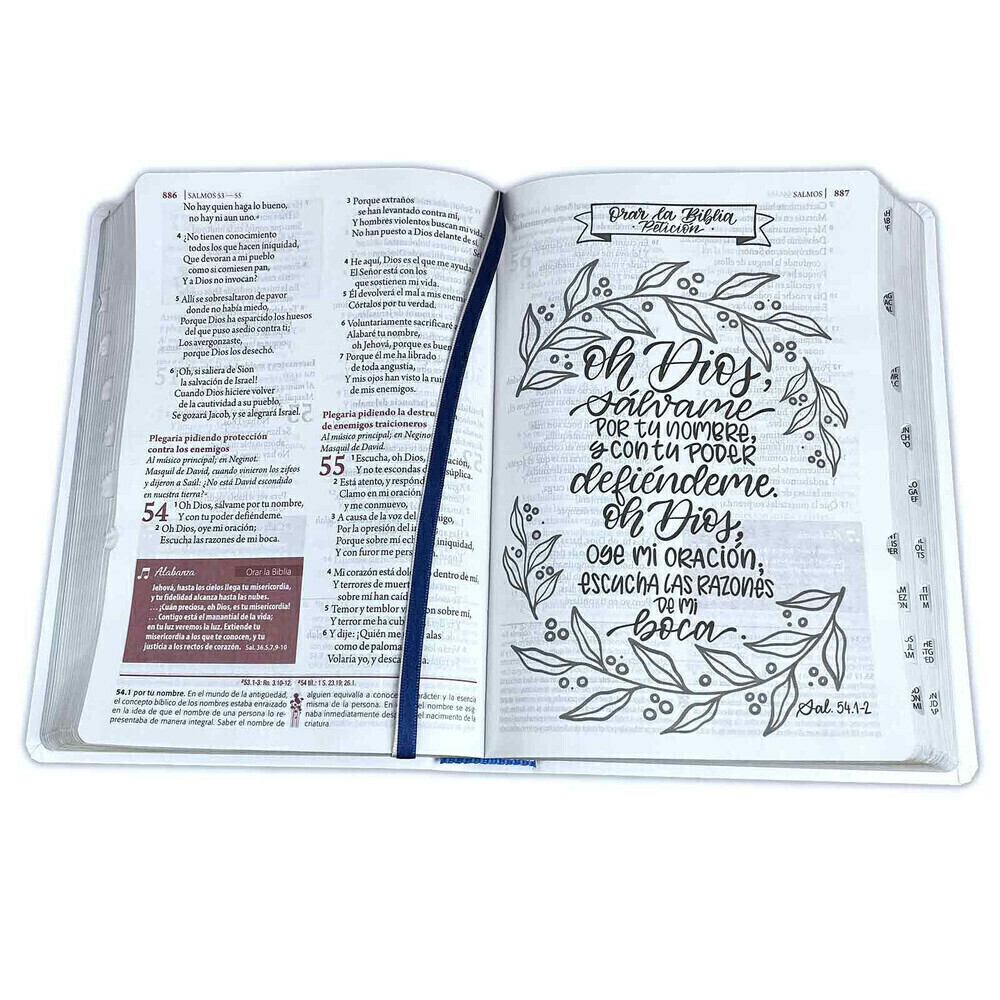 886 | SALMOS 53—55
No hay quien haga lo bueno,
no hay ni aun uno.ᵃ
4 ¿No tienen conocimiento
todos los que hacen iniquidad,
Que devoran a mi pueblo
como si comiesen pan,
Y a Dios no invocan?
5 Allí se sobresaltaron de pavor
donde no había miedo,
Porque Dios ha esparcido los huesos
del que puso asedio contra ti;
Los avergonzaste,
porque Dios los desechó.
6 ¡Oh, si saliera de Sion
la salvación de Israel!
Cuando Dios hiciere volver
de la cautividad a su pueblo,
Se gozará Jacob, y se alegrará Israel.
Plegaria pidiendo protección
contra los enemigos
Al músico principal; en Neginot.
Masquil de David, cuando vinieron los zifeos
y dijeron a Saúl: ¿No está David escondido
en nuestra tierra?
54 1 Oh Dios, sálvame por tu nombre,
Y con tu poder defiéndeme.
2 Oh Dios, oye mi oración;
Escucha las razones de mi boca.
Alabanza Orar la Biblia
Jehová, hasta los cielos llega tu misericordia,
y tu fidelidad alcanza hasta las nubes.
. . . ¡Cuán preciosa, oh Dios, es tu misericordia!
. . . Contigo está el manantial de la vida;
en tu luz veremos la luz. Extiende tu
misericordia a los que te conocen, y tu
justicia a los rectos de corazón. Sal. 36.5,7,9-10
3 Porque extraños
se han levantado contra mí,
Y hombres violentos buscan mi vida
No han puesto a Dios delante de sí.
4 He aquí, Dios es el que me ayuda
El Señor está con los
que sostienen mi vida.
5 Él devolverá el mal a mis enem
Córtalos por tu verdad.
6 Voluntariamente sacrificaré a
Alabaré tu nombre,
oh Jehová, porque es buen
7 Porque él me ha librado
de toda angustia,
Y mis ojos han visto la ruin
de mis enemigos.
Plegaria pidiendo la destruc
de enemigos traicioneros
Al músico principal; en Neginot
Masquil de David.
55 1 Escucha, oh Dios, ración,
Y no te escondas de súplica.
2 Está atento, y respónd
Clamo en mi oración
y me conmuevo,
3 A causa de la voz del igo,
Por la opresión del im
Porque sobre mí ech iniquidad,
Y con furor me pers
4 Mi corazón está dolo dentro de mí,
Y terrores de muert
sobre mí han caíd
5 Temor y temblor v on sobre mí,
Y terror me ha cub
6 Y dije: ¡Quién me alas
como de paloma!
Volaría yo, y desca
53.1-3: Ro. 3.10-12. 54 tít.: 1 S. 23.19; 26.1.
54.1 por tu nombre. En el mundo de la antigüedad,
el concepto bíblico de los nombres estaba enraizado
en la idea de que el nombre de una persona lo re-
presentaba de manera integral. Saber el nombre de
alguien equivalía a conoc arácter y la esencia
misma de la persona. En nombre se asig-
naba inmediatamente des nacimiento de la
criatura.
SALMOS | 887
Orar la Biblia
Petición
Oh, Dios,
sálvame
POR TU NOMBRE,
y CON TU PODER
defiéndeme.
Oh Dios,
OYE MI ORACIÓN;
ESCUCHA LAS RAZONES
DE MI
boca.
Sal. 54.1-2